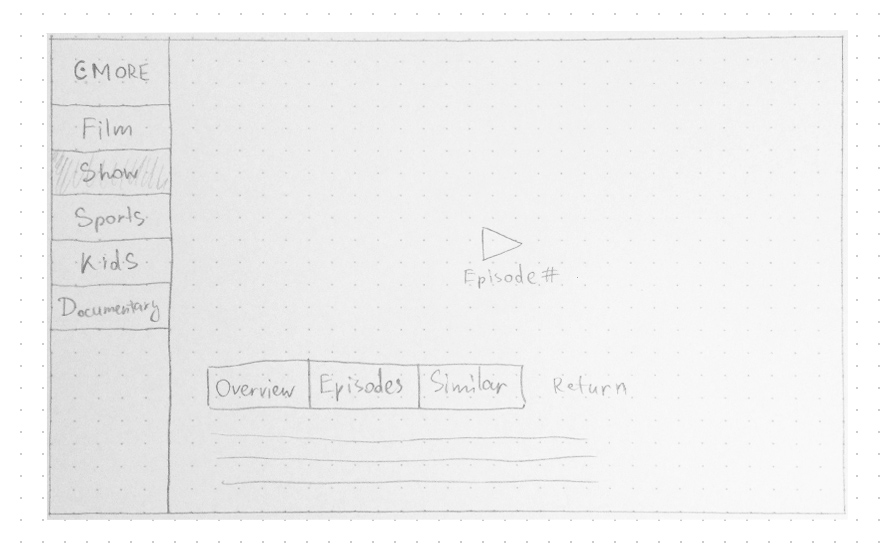 CMORE
Film
Show
Sports
Kids
Documentary
Episode #
Overview Episodes Similar Return